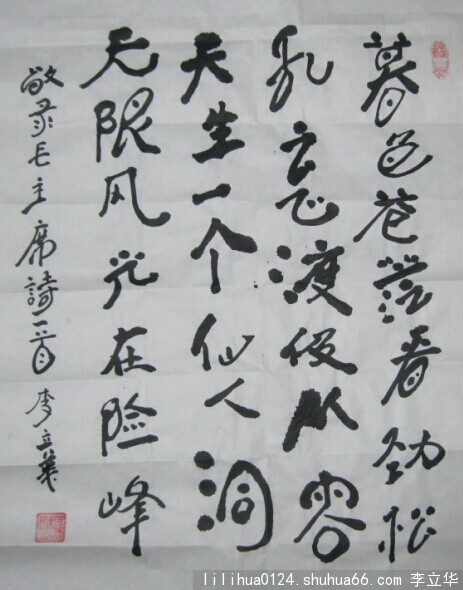 暮色苍茫看劲松
乱云飞渡仍从容
天生一个仙人洞
无限风光在险峰
敬录毛主席詩一首 李立華
lilihua0124.shuhua66.com 李立华